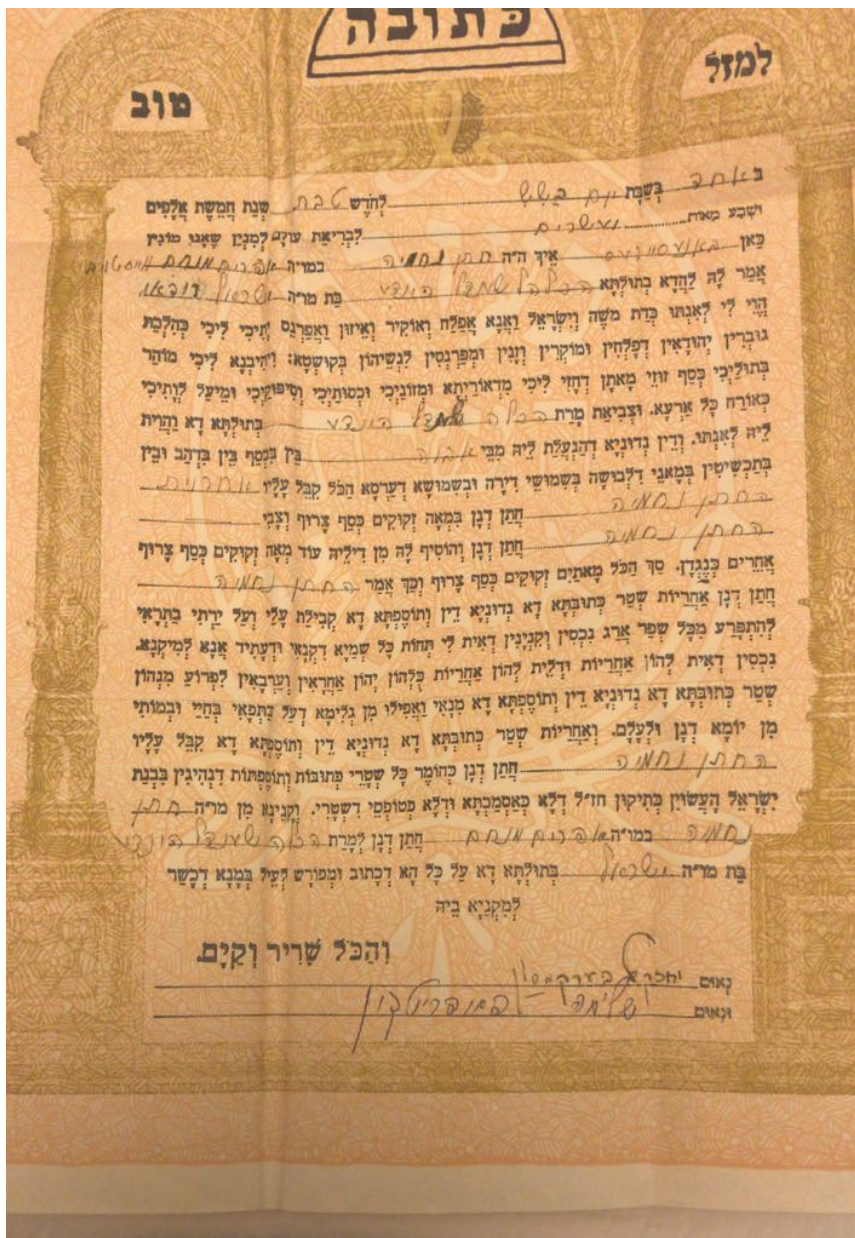 כתובה
למזל
טוב
באחד בְּשַׁבָּת יום לְחֹדֶשׁ טבת שְׁנַת חֲמֵשֶׁת אֲלָפִים
וּשְׁבַע מֵאוֹת ועשרים לִבְרִיאַת עוֹלָם לְמִנְיָן שֶׁאָנוּ מוֹנִין
כַּאן איך ה"ה חתן נחמיה במו"ה אפרים מנחם
אָמַר לָהּ לַהֲדָא בְתוּלְתָּא הכלה בַּת מו"ה ישראל
הֲוֵי לִי לְאִנְתּוּ כְּדַת מֹשֶׁה וְיִשְׂרָאֵל וַאֲנָא אֶפְלַח וְאוֹקִיר וְאֵיזוּן וַאֲפַרְנֵס יָתִיכִי לִיכִי כְּהִלְכַת
גּוּבְרִין יְהוּדָאִין דְּפָלְחִין וּמוֹקְרִין וְזָנִין וּמְפַרְנְסִין לִנְשֵׁיהוֹן בְּקוּשְׁטָא: וִיהִיבְנָא לִיכִי מוֹהַר
בְּתוּלַיְכִי כְּסַף זוּזֵי מָאתָן דְּחָזֵי לִיכִי מִדְּאוֹרַיְתָא וּמְזוֹנַיְכִי וּכְסוּתַיְכִי וְסִיפּוּקַיְכִי וּמֵיעַל לְוָתִיכִי
כְּאוֹרַח כָּל אַרְעָא. וּצְבִיאַת מָרַת הכלה בְּתוּלְתָּא דָא וַהֲוַת
לֵיהּ לְאִנְתּוּ. וְדֵין נְדוּנְיָא דְּהַנְעֲלַת לֵיהּ מִבֵּי אבוה בֵּין בִּכְסַף בֵּין בִּדְהַב וּבֵין
בְּתַכְשִׁיטִין בְּמָאנֵי דִלְבוּשָׁה בְּשִׁמּוּשֵׁי דִירָה וּבְשִׁמּוּשָׁא דְעַרְסָא הַכֹּל קִבֵּל עָלָיו אחריות
החתן נחמיה חֲתַן דְּנָן בְּמֵאָה זְקוּקִים כֶּסֶף צָרוּף וְצָבֵי
החתן נחמיה חֲתַן דְּנָן וְהוֹסִיף לָהּ מִן דִּילֵיהּ עוֹד מֵאָה זְקוּקִים כֶּסֶף צָרוּף
אֲחֵרִים כְּנֶגְדָּן. סַךְ הַכֹּל מָאתַיִם זְקוּקִים כֶּסֶף צָרוּף וְכָךְ אָמַר החתן נחמיה
חֲתַן דְּנָן אַחֲרָיוּת שְׁטַר כְּתוּבְּתָא דָא נְדוּנְיָא דֵין וְתוֹסֶפְתָּא דָא קַבִּילַת עָלַי וְעַל יַרְתַי בַּתְרָאֵי
לְהִתְפְּרַע מִכָּל שְׁפַר אֲרַג נִכְסִין וְקִנְיָנִין דְּאִית לִי תְּחוֹת כָּל שְׁמַיָּא דִּקְנָאִי וּדְעָתִיד אֲנָא לְמִיקְנָא.
נִכְסִין דְּאִית לְהוֹן אַחֲרָיוּת וּדְלֵית לְהוֹן אַחֲרָיוּת כֻּלְּהוֹן יְהוֹן אַחֲרָאִין וְעַרְבָאִין לִפְרוֹעַ מִנְּהוֹן
שְׁטַר כְּתוּבְּתָא דָא נְדוּנְיָא דֵין וְתוֹסֶפְתָּא דָא מִנַּאי וַאֲפִילוּ מִן גְּלִימָא דְעַל כַּתְפָּאִי בְּחַיַּי וּבְמוֹתִי
מִן יוֹמָא דְנָן וּלְעָלַם. וְאַחֲרָיוּת שְׁטַר כְּתוּבְּתָא דָא נְדוּנְיָא דֵין וְתוֹסֶפְתָּא דָא קִבֵּל עָלָיו
החתן נחמיה חֲתַן דְּנָן כְּחוֹמֶר כָּל שִׁטְרֵי כְּתוּבּוֹת וְתוֹסֶפְתּוֹת דְּנָהֲיגִין בִּבְנַת
יִשְׂרָאֵל הָעֲשׂוּיִן כְּתִיקוּן חז"ל דְּלָא כְּאַסְמַכְתָּא וּדְלָא כְּטוֹפְסֵי דִשְׁטָרֵי. וְקָנִינָא מִן מו"ה חתן
נחמיה במו"ה אפרים מנחם חֲתַן דְּנָן לְמָרַת הכלה
בַּת מו"ה ישראל בְּתוּלְתָּא דָא עַל כָּל הָא דְּכָתוּב וּמְפוֹרָשׁ לְעֵיל בְּמָנָא דְּכָשַׁר
לְמִקְנְיָא בֵּיהּ
וְהַכֹּל שָׁרִיר וְקַיָּם.
נְאוּם יחזקאל
וּנְאוּם שלמה